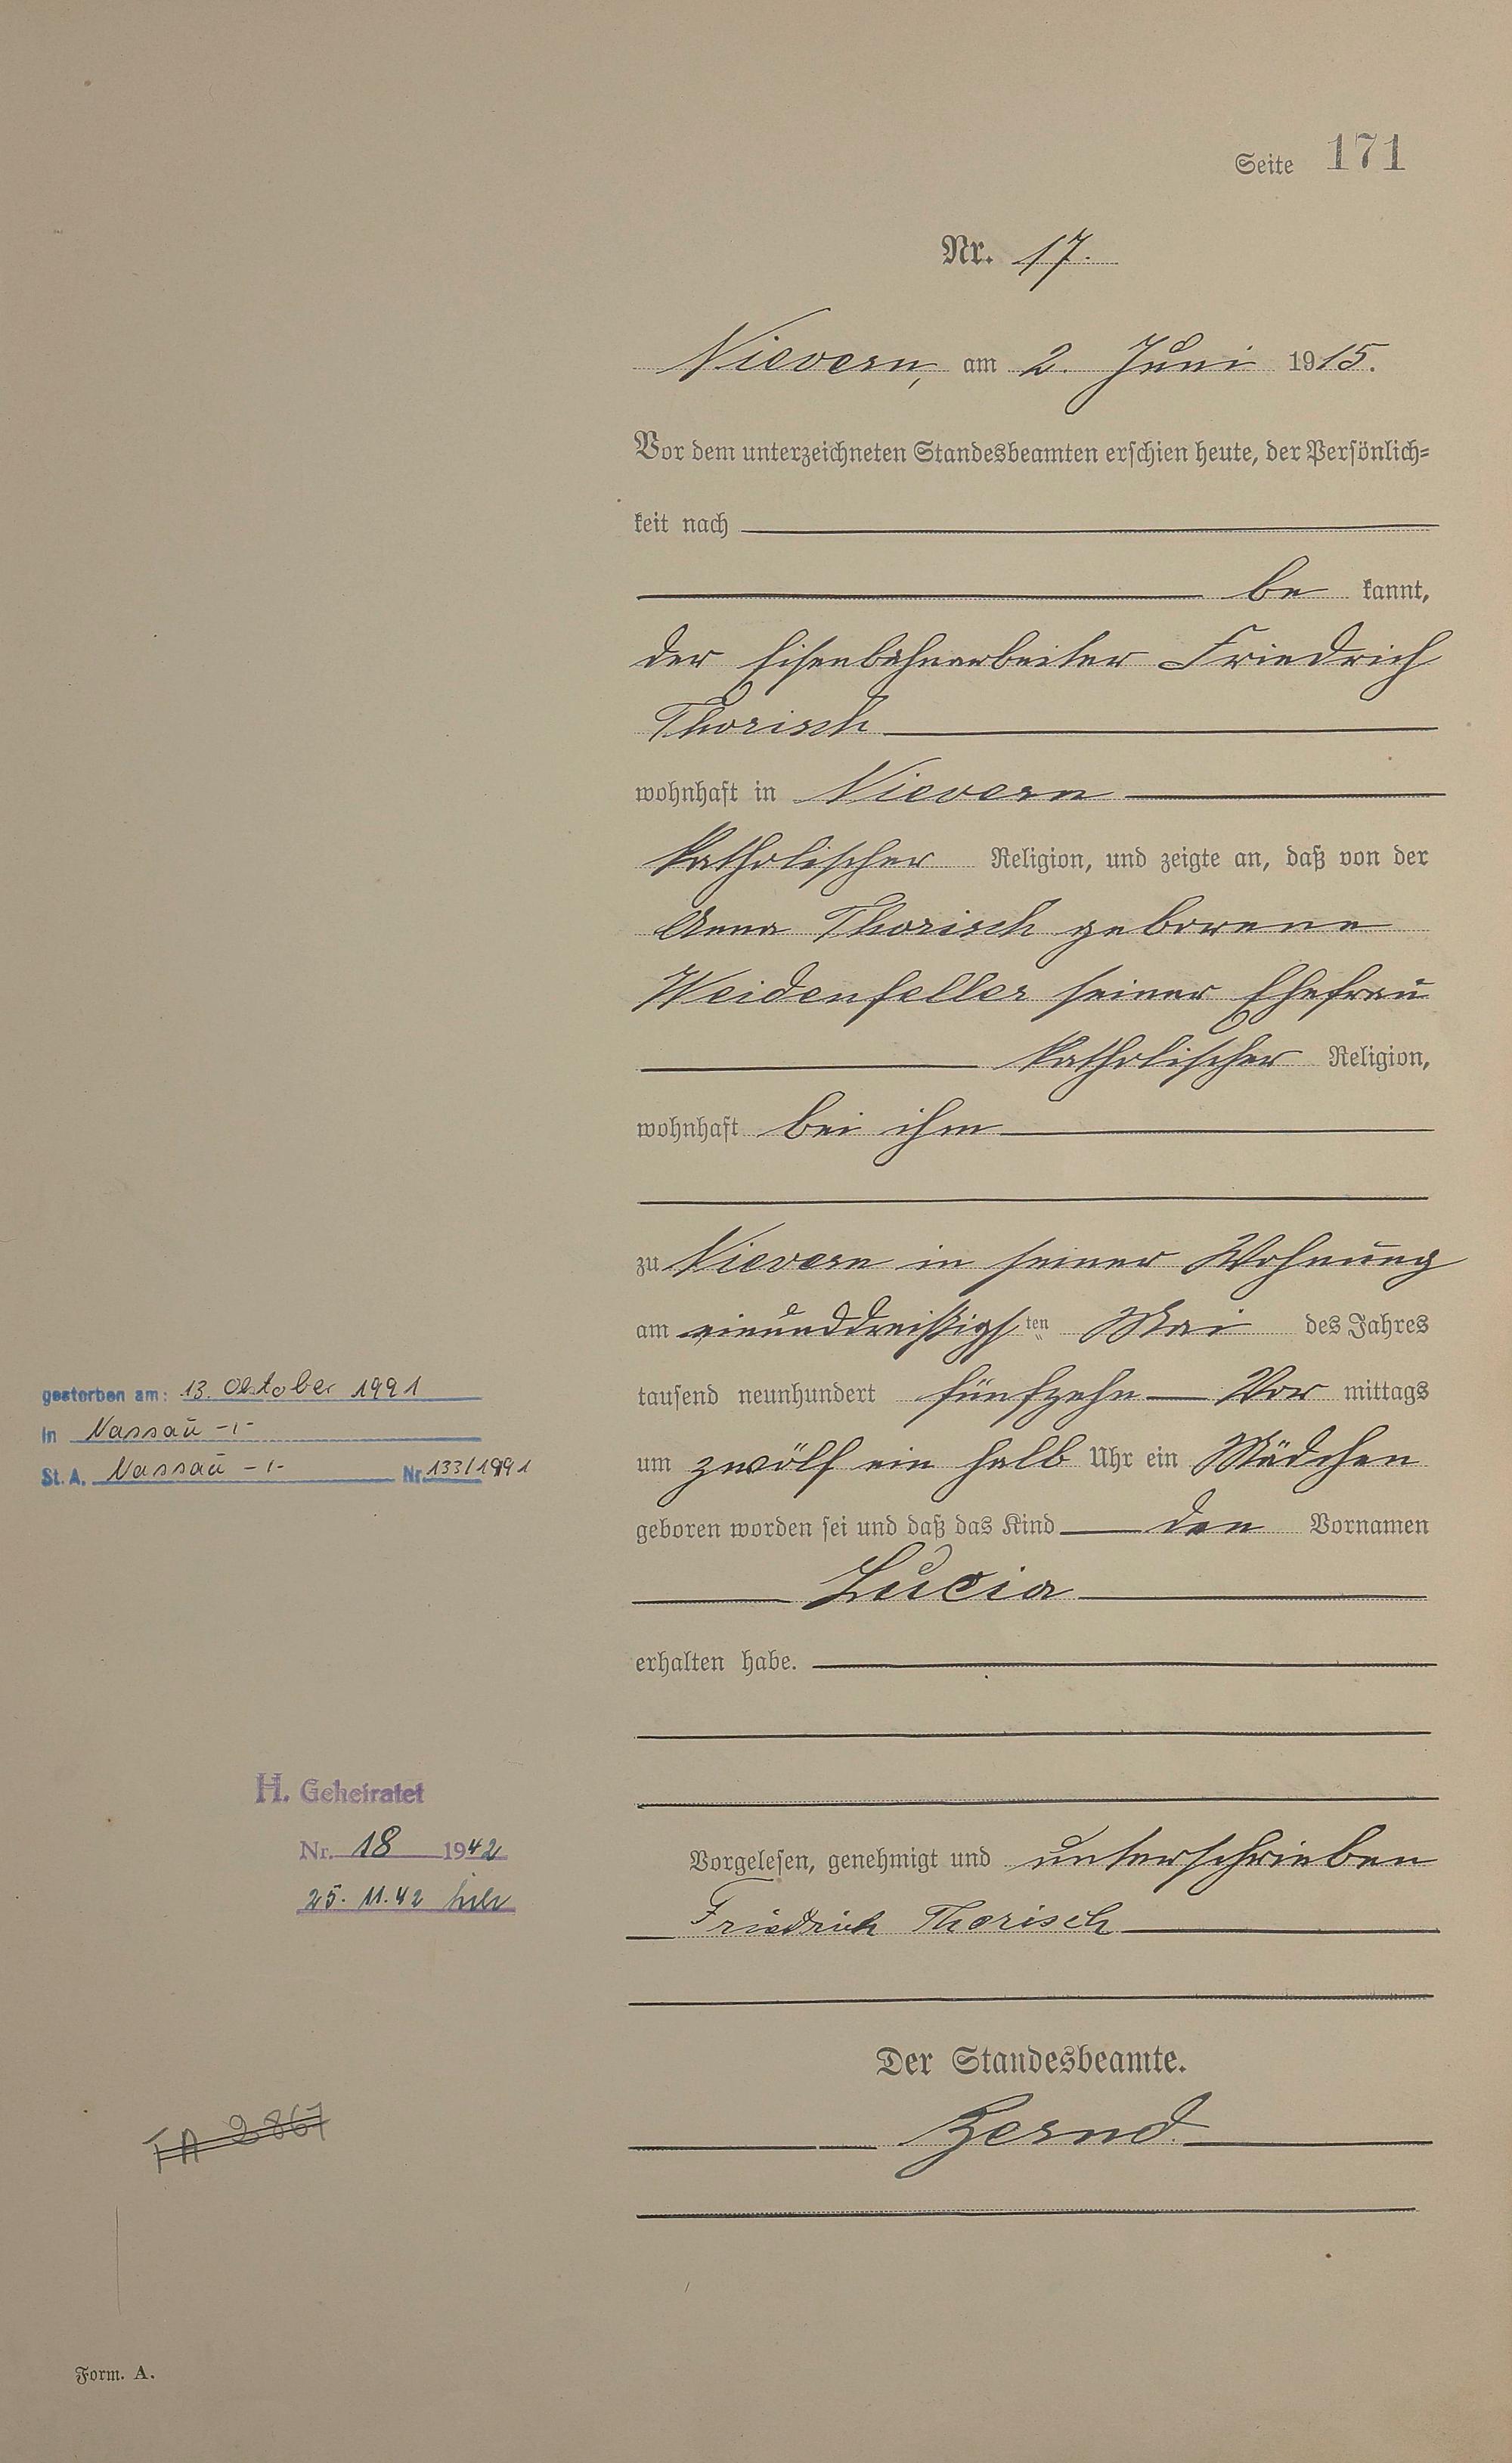 Seite 171
Nr. 17.
Nievern, am 2. Juni 1915.
Vor dem unterzeichneten Standesbeamten erschien heute, der Persönlich-
keit nach
be kannt,
der Eisenbahnarbeiter Friedrich
Thorisch
wohnhaft in Nievern
katholischer Religion, und zeigte an, daß von der
Anna Thorisch geborene
Weidenfeller seiner Ehefrau
katholischer Religion,
wohnhaft bei ihm
zu Nievern in seiner Wohnung
am einunddreißigsten Mai des Jahres
tausend neunhundert fünfzehn Vor mittags
um zwölf ein halb Uhr ein Mädchen
geboren worden sei und daß das Kind den Vornamen
Lucia
erhalten habe.
Vorgelesen, genehmigt und unterschrieben
Friedrich Thorisch
Der Standesbeamte.
Zernd
gestorben am: 13. Oktober 1991
in Nassau -/-
St. A. Nassau -/- Nr. 133/1991
H. Geheiratet
Nr. 18 1942
25. 11. 42
FA 2867
Form. A.